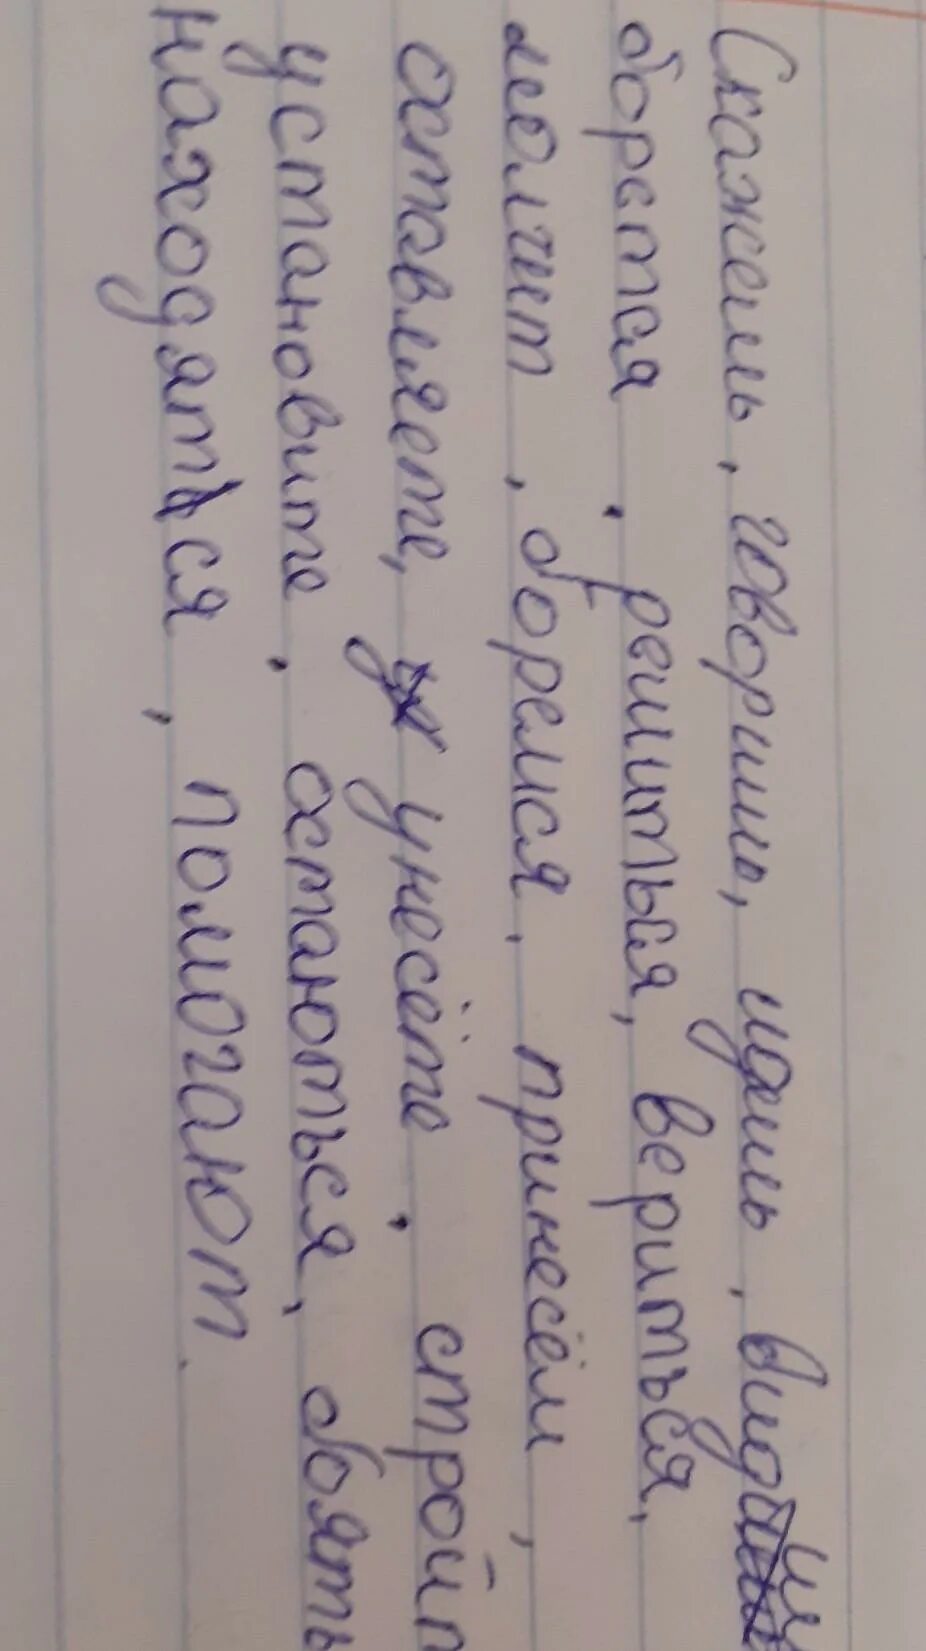 Скажешь, говоришь, идешь,
борется, решиться, вериться,
молчит, боремся, принесём,
оставляете, унесёте, стройт
установите, остаються, боять
находятся, помогают.